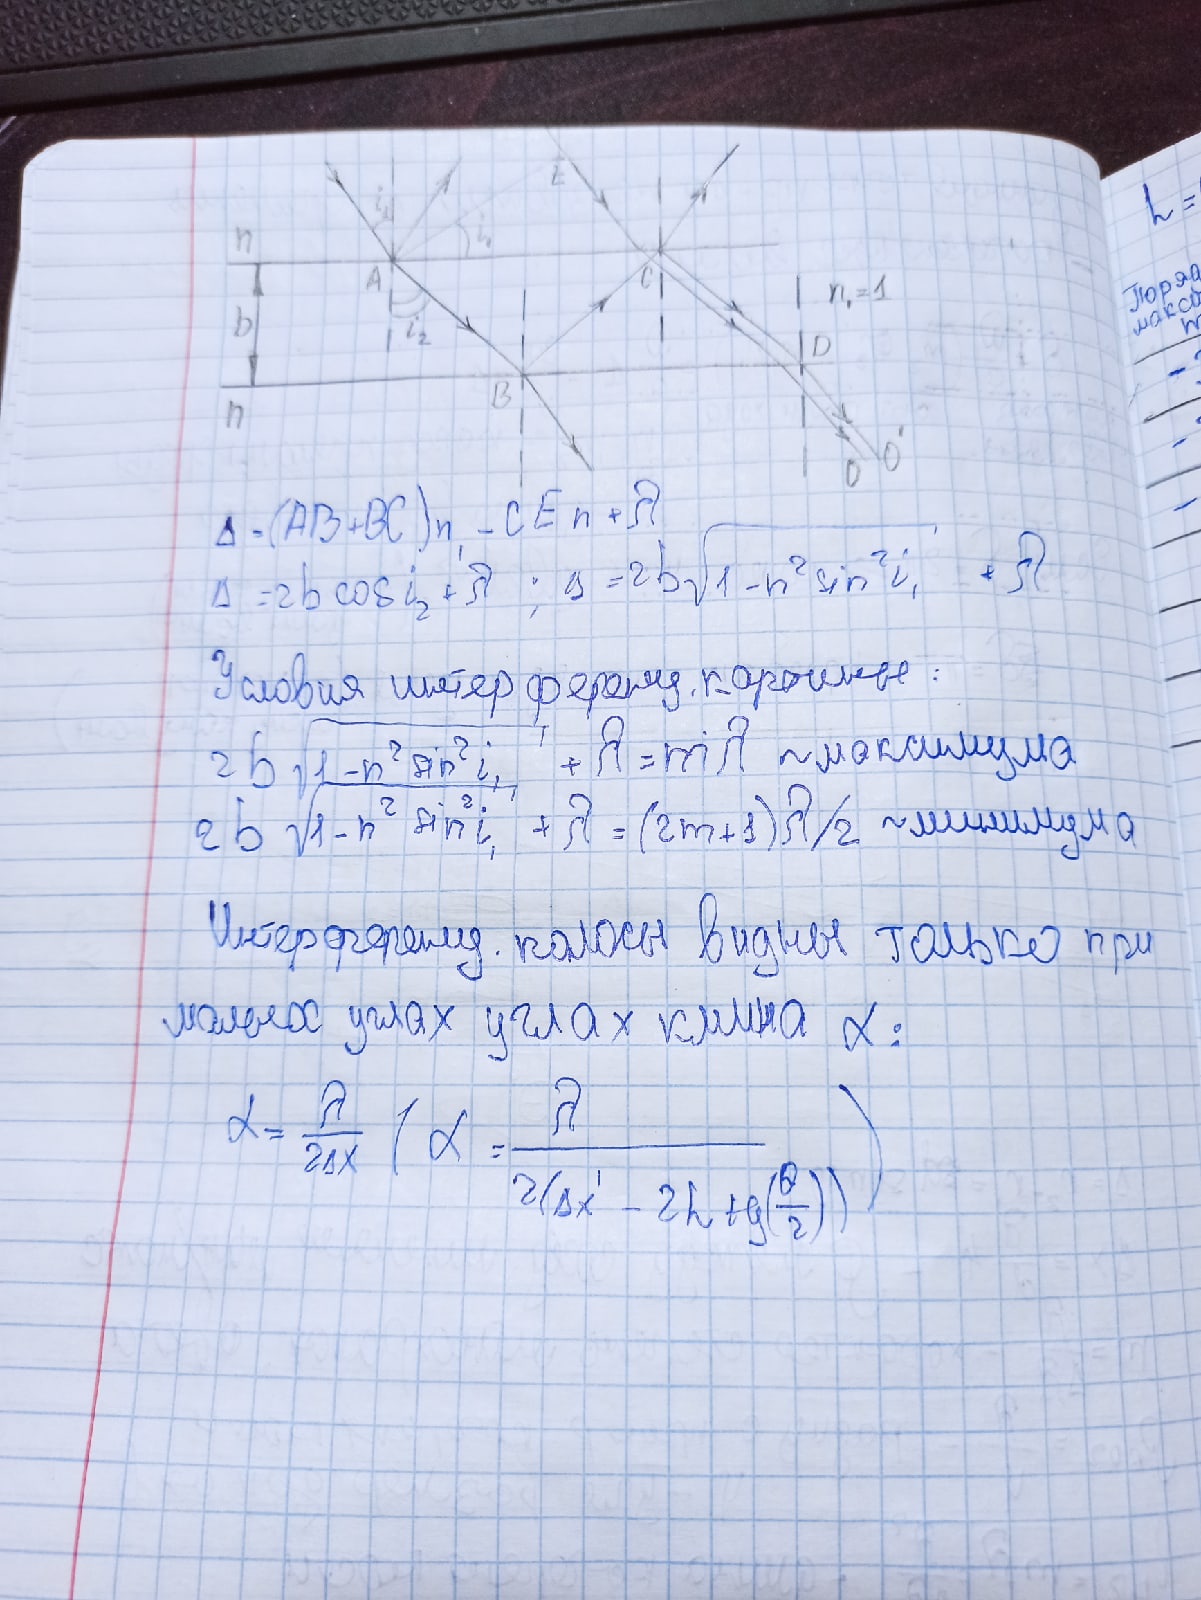 E
i₁
i₁
n
A
C
b
i₂
n₁=1
D
B
n
O O'
Δ=(AB+BC)n₁-CEn+λ
Δ=2b cos i₂+λ ; Δ=2b√(1-n²sin²i₁) +λ
Условия интерференц. картины:
2b√(1-n²sin²i₁) +λ=mλ ~максимума
2b√(1-n²sin²i₁) +λ=(2m+1)λ/2 ~минимума
Интерференц. полосы видны только при
малых углах углах клина α:
α=λ/2Δx (α=λ/2(Δx'-2h tg(α/2)))
h=
Поряд
макси
m
-
-
-